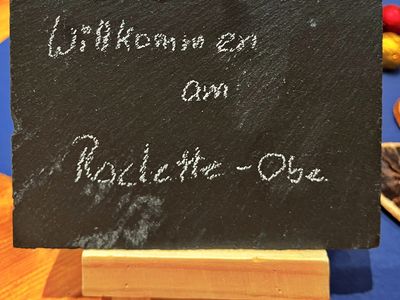 Willkommen
am
Raclette-Obe